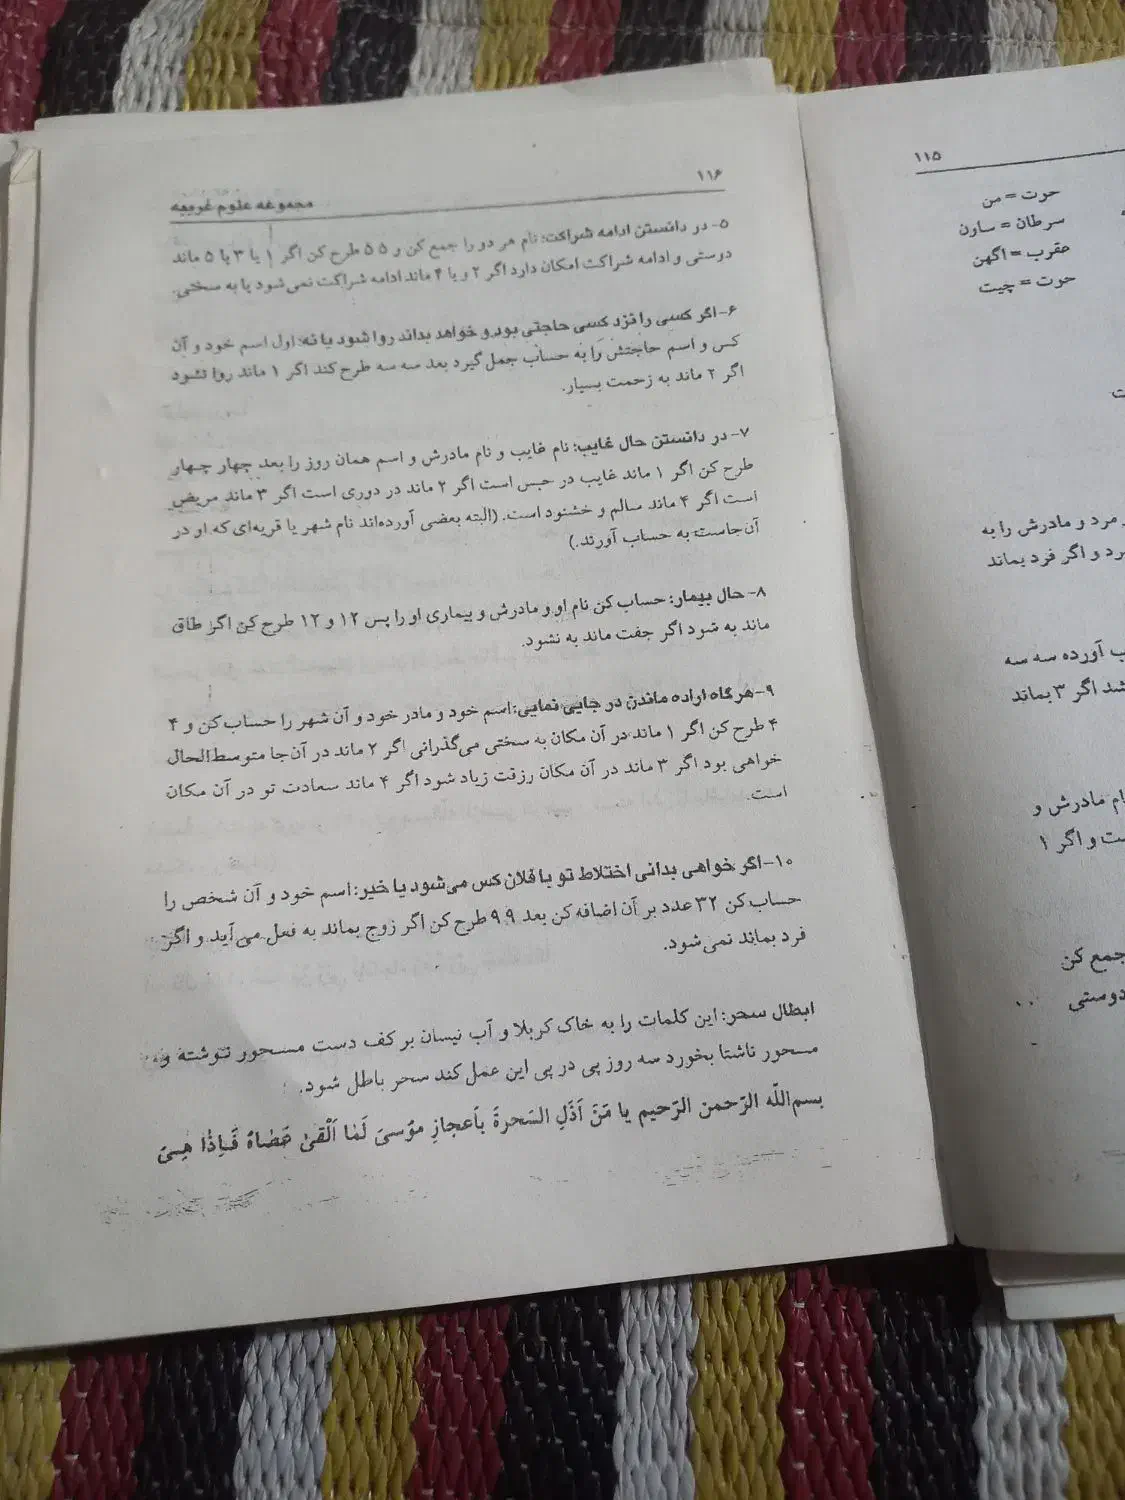 ۱۱۶
مجموعه علوم غریبه
۵- در دانستن ادامه شراکت: نام هر دو را جمع کن و ۵ ۵ طرح کن اگر ۱ یا ۳ یا ۵ ماند
دوستی و ادامه شراکت امکان دارد اگر ۲ و یا ۴ ماند ادامه شراکت نمی‌شود یا به سختی.
۶- اگر کسی را نزد کسی حاجتی بود و خواهد بداند روا شود یا نه: اول اسم خود و آن
کس و اسم حاجتش را به حساب جمل گیرد بعد سه سه طرح کند اگر ۱ ماند روا نشود
اگر ۲ ماند به زحمت بسیار.
۷- در دانستن حال غایب: نام غایب و نام مادرش و اسم همان روز را بعد چهار چهار
طرح کن اگر ۱ ماند غایب در حبس است اگر ۲ ماند در دوری است اگر ۳ ماند مریض
است اگر ۴ ماند سالم و خشنود است. (البته بعضی آورده‌اند نام شهر یا قریه‌ای که او در
آن‌جاست به حساب آورند.)
۸- حال بیمار: حساب کن نام او و مادرش و بیماری او را پس ۱۲ و ۱۲ طرح کن اگر طاق
ماند به شود اگر جفت ماند به نشود.
۹- هرگاه اراده ماندن در جایی نمایی: اسم خود و مادر خود و آن شهر را حساب کن و ۴
۴ طرح کن اگر ۱ ماند در آن مکان به سختی می‌گذرانی اگر ۲ ماند در آن‌جا متوسط‌الحال
خواهی بود اگر ۳ ماند در آن مکان رزقت زیاد شود اگر ۴ ماند سعادت تو در آن مکان
است.
۱۰- اگر خواهی بدانی اختلاط تو با فلان کس می‌شود یا خیر: اسم خود و آن شخص را
حساب کن ۳۲ عدد بر آن اضافه کن بعد ۹ ۹ طرح کن اگر زوج بماند به فعل می‌آید و اگر
فرد بماند نمی‌شود.
ابطال سحر: این کلمات را به خاک کربلا و آب نیسان بر کف دست مسحور نوشته و
مسحور ناشتا بخورد سه روز پی در پی این عمل کند سحر باطل شود.
بسم‌اللّه الرّحمن الرّحیم یا مَنَ اَذَلِ السَحرةَ باَعجازِ موُسیَ لَمٰا اَلْقیٰ عَصٰاهُ فَاِذٰا هِیَ
۱۱۵
حوت = من
سرطان = ساون
عقرب = اگهن
حوت = چیت
مرد و مادرش را به
و اگر فرد بماند
آورده سه سه
اگر ۳ بماند
مادرش و
و اگر ۱
جمع کن
دوستی